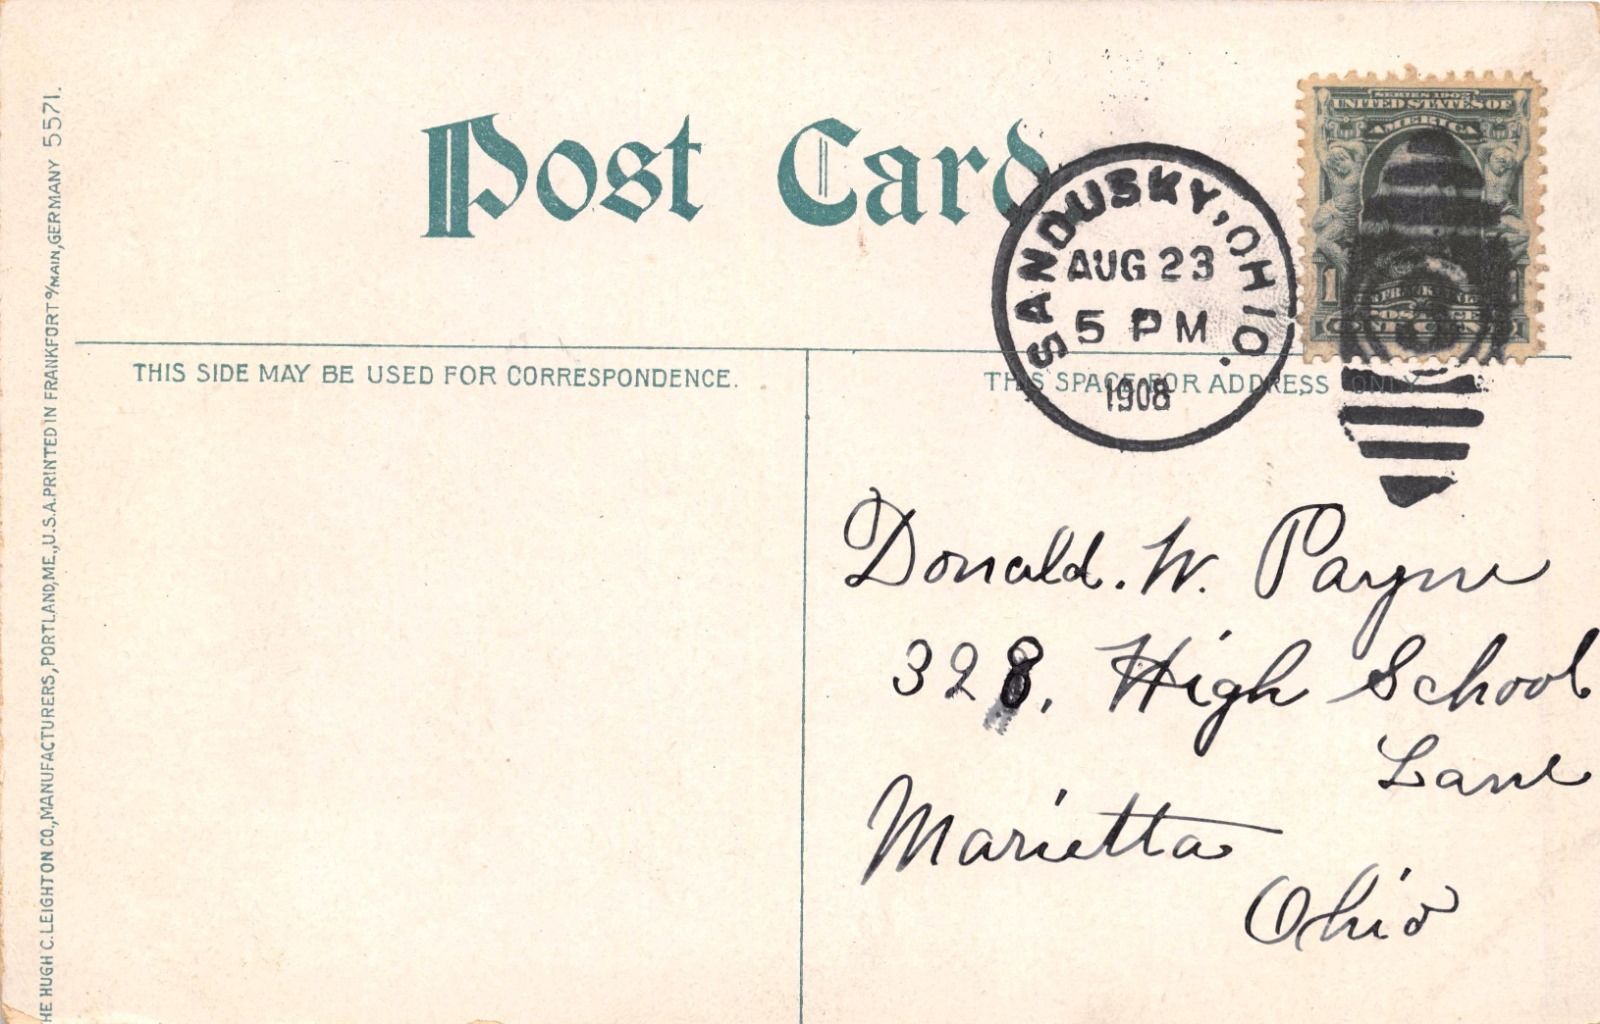 Post Card
SANDUSKY, OHIO.
AUG 23
5 PM
1908
SERIES 1902
UNITED STATES OF
AMERICA
1
THIS SIDE MAY BE USED FOR CORRESPONDENCE.
THIS SPACE FOR ADDRESS ONLY.
Donald. W. Payne
328, High School
Lane
Marietta
Ohio
HE HUGH C. LEIGHTON CO., MANUFACTURERS, PORTLAND, ME., U.S.A. PRINTED IN FRANKFORT o/MAIN, GERMANY 5571.